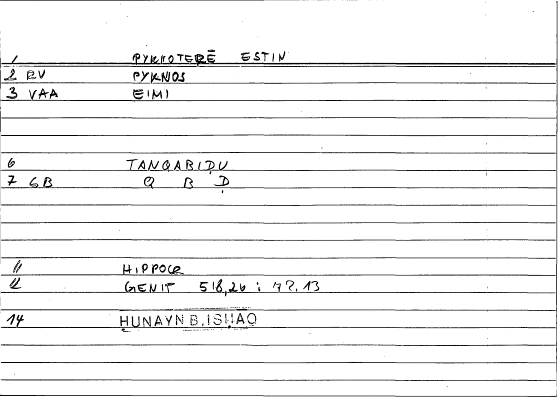 1 PYKNOTERĒ ESTIN
2 RV PYKNOS
3 VAA EIMI
6 TANQABIḌU
7 GB Q B Ḍ
11 HIPPOCR
12 GENIT 518,26 : 47.13
14 ḤUNAYN B.ISḤAQ